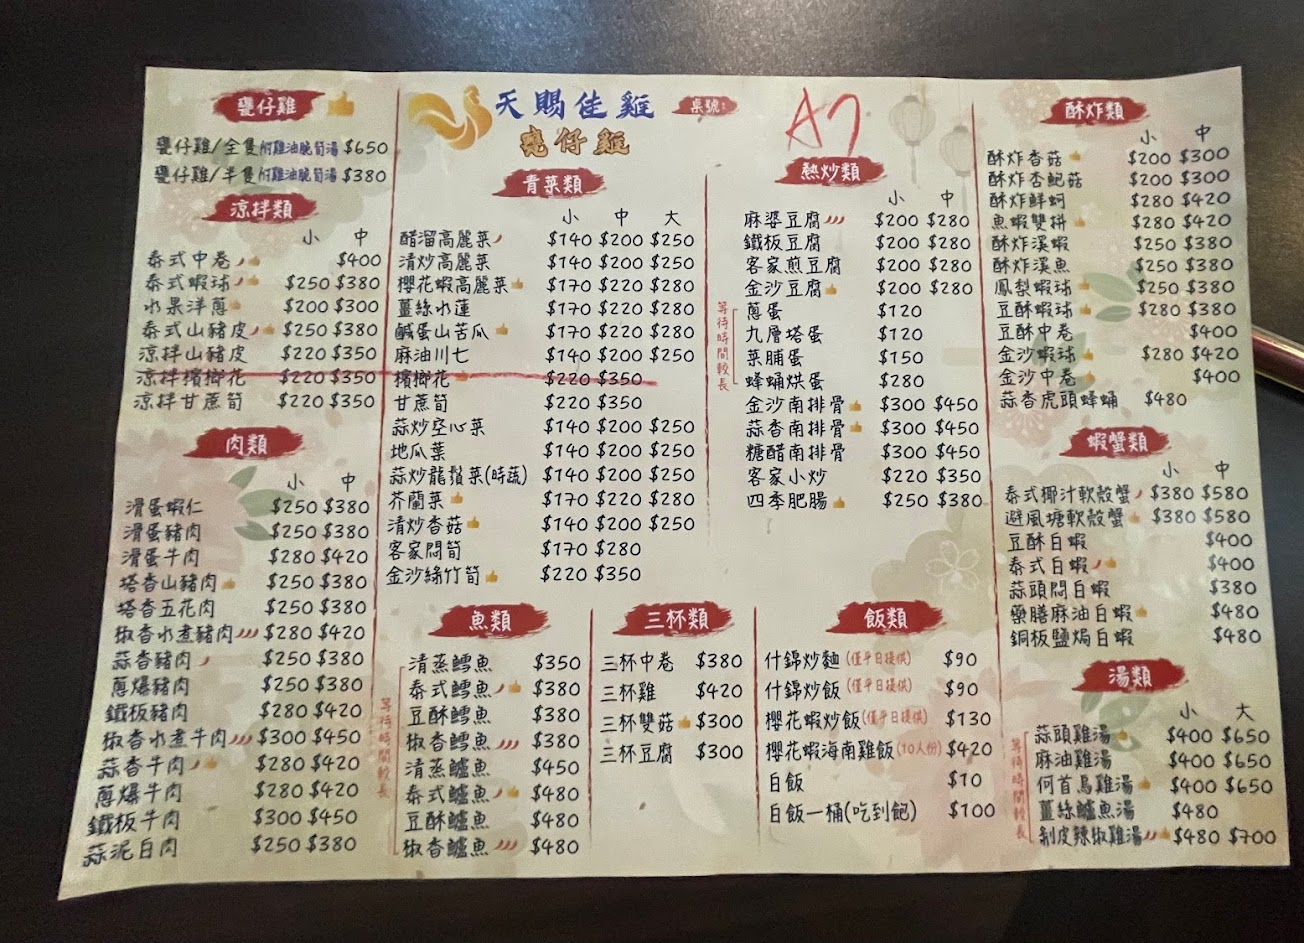 甕仔雞
甕仔雞/全隻附雞油脆筍湯 $650
甕仔雞/半隻附雞油脆筍湯 $380
涼拌類
小 中
泰式中卷 $400
泰式蝦球 $250 $380
水果洋蔥 $200 $300
泰式山豬皮 $250 $380
涼拌山豬皮 $220 $350
涼拌檳榔花 $220 $350
涼拌甘蔗筍 $220 $350
肉類
小 中
滑蛋蝦仁 $250 $380
滑蛋豬肉 $250 $380
滑蛋牛肉 $280 $420
塔香山豬肉 $250 $380
塔香五花肉 $250 $380
椒香水煮豬肉 $280 $420
蒜香豬肉 $250 $380
蔥爆豬肉 $250 $380
鐵板豬肉 $280 $420
椒香水煮牛肉 $300 $450
蒜香牛肉 $280 $420
蔥爆牛肉 $280 $420
鐵板牛肉 $300 $450
蒜泥白肉 $250 $380
天賜佳雞
甕仔雞
桌號:
A7
青菜類
小 中 大
醋溜高麗菜 $140 $200 $250
清炒高麗菜 $140 $200 $250
櫻花蝦高麗菜 $170 $220 $280
薑絲水蓮 $170 $220 $280
鹹蛋山苦瓜 $170 $220 $280
麻油川七 $140 $200 $250
檳榔花 $220 $350
甘蔗筍 $220 $350
蒜炒空心菜 $140 $200 $250
地瓜葉 $140 $200 $250
蒜炒龍鬚菜(時蔬) $140 $200 $250
芥蘭菜 $170 $220 $280
清炒香菇 $140 $200 $250
客家悶筍 $170 $280
金沙綠竹筍 $220 $350
熱炒類
小 中
麻婆豆腐 $200 $280
鐵板豆腐 $200 $280
客家煎豆腐 $200 $280
金沙豆腐 $200 $280
等待時間較長
蔥蛋 $120
九層塔蛋 $120
菜脯蛋 $150
蜂蛹烘蛋 $280
金沙南排骨 $300 $450
蒜香南排骨 $300 $450
糖醋南排骨 $300 $450
客家小炒 $220 $350
四季肥腸 $250 $380
魚類
等待時間較長
清蒸鱈魚 $350
泰式鱈魚 $380
豆酥鱈魚 $380
椒香鱈魚 $380
清蒸鱸魚 $450
泰式鱸魚 $480
豆酥鱸魚 $480
椒香鱸魚 $480
三杯類
三杯中卷 $380
三杯雞 $420
三杯雙菇 $300
三杯豆腐 $300
飯類
什錦炒麵(僅平日提供) $90
什錦炒飯(僅平日提供) $90
櫻花蝦炒飯(僅平日提供) $130
櫻花蝦海南雞飯(10人份) $420
白飯 $10
白飯一桶(吃到飽) $100
酥炸類
小 中
酥炸香菇 $200 $300
酥炸杏鮑菇 $200 $300
酥炸鮮蚵 $280 $420
魚蝦雙拼 $280 $420
酥炸溪蝦 $250 $380
酥炸溪魚 $250 $380
鳳梨蝦球 $250 $380
豆酥蝦球 $280 $380
豆酥中卷 $400
金沙蝦球 $280 $420
金沙中卷 $400
蒜香虎頭蜂蛹 $480
蝦蟹類
小 中
泰式椰汁軟殼蟹 $380 $580
避風塘軟殼蟹 $380 $580
豆酥白蝦 $400
泰式白蝦 $400
蒜頭悶白蝦 $380
藥膳麻油白蝦 $480
銅板鹽焗白蝦 $480
湯類
小 大
等待時間較長
蒜頭雞湯 $400 $650
麻油雞湯 $400 $650
何首烏雞湯 $400 $650
薑絲鱸魚湯 $480
剝皮辣椒雞湯 $480 $700